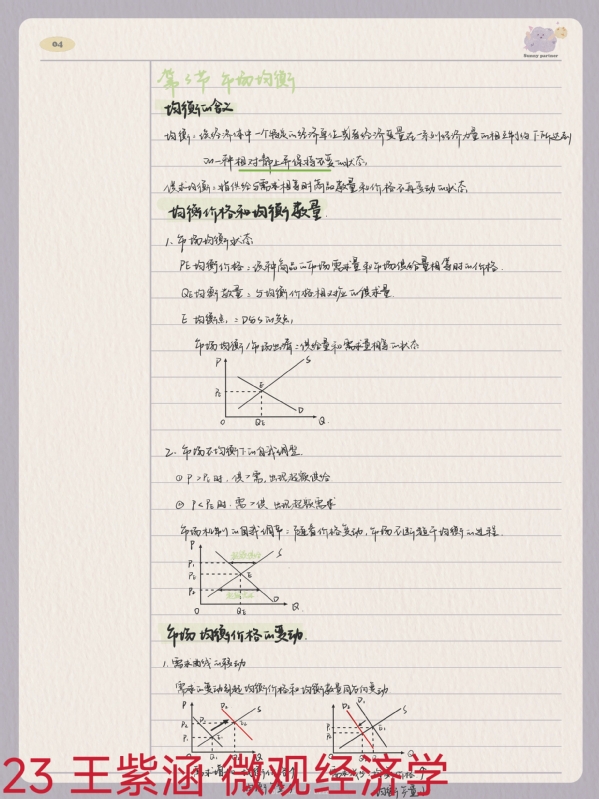 04
Bunny partner
第3节 市场均衡
均衡的含义
均衡：某经济体中一个特定的经济单位或者经济变量在一系列经济力量的相互制约下所达到
的一种相对静止并保持不变的状态。
供求均衡：指供给与需求相等时商品数量和价格不再变动的状态
均衡价格和均衡数量
1. 市场均衡状态
PE均衡价格：该种商品的市场需求量和市场供给量相等时的价格
QE均衡数量：与均衡价格相对应的供求量
E 均衡点：D与S的交点
市场均衡/市场出清：供给量和需求量相等的状态
P
S
E
PE
D
O
QE
Q
2. 市场不均衡下的自我调整
① P>PE时，供>需，出现超额供给
② P<PE时，需>供，出现超额需求
市场机制的自我调节：随着价格变动，市场不断趋于均衡的过程
P
S
P1
PE
E
P2
D
O
QE
Q
市场均衡价格的变动
1. 需求曲线的移动
需求的变动引起均衡价格和均衡数量同方向变动
P
D2
S
P
D1
S
Q
Q
23 王紫涵 微观经济学